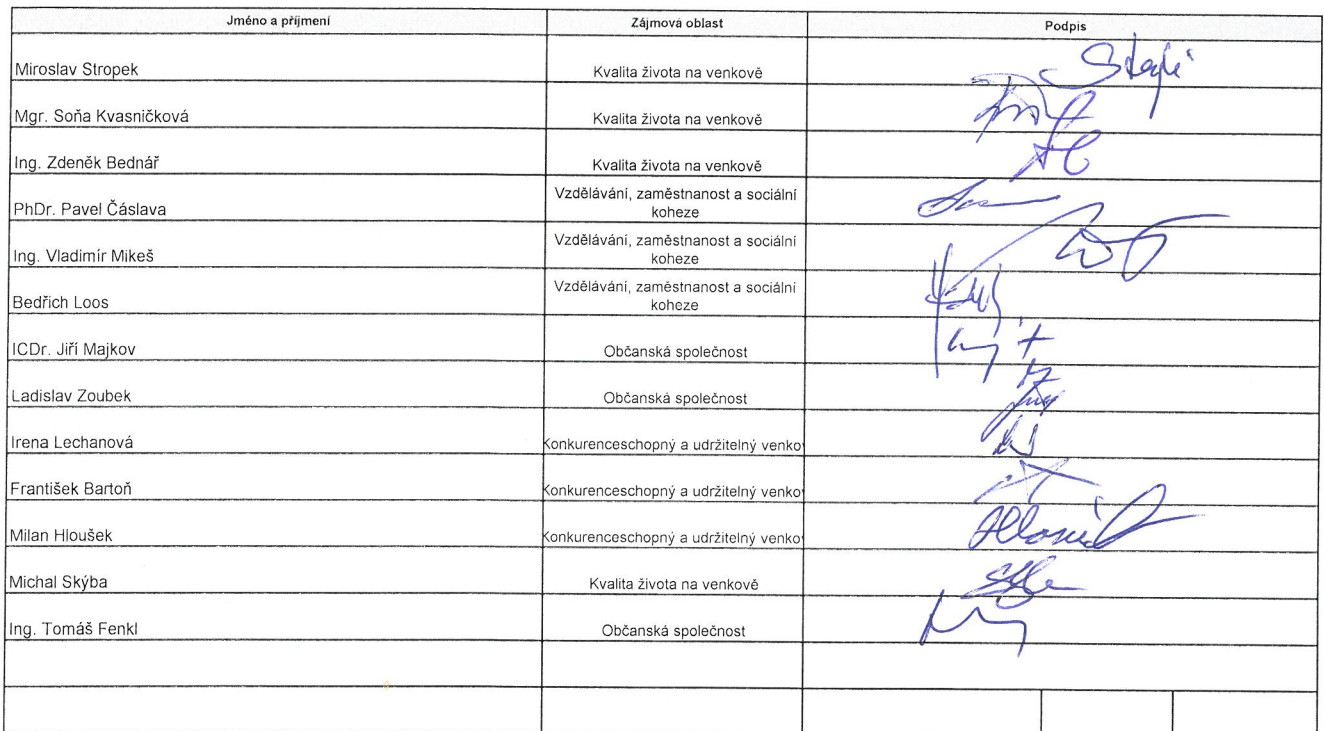 Jméno a příjmení Zájmová oblast Podpis
Miroslav Stropek Kvalita života na venkově
Mgr. Soňa Kvasničková Kvalita života na venkově
Ing. Zdeněk Bednář Kvalita života na venkově
PhDr. Pavel Čáslava Vzdělávání, zaměstnanost a sociální
koheze
Ing. Vladimír Mikeš Vzdělávání, zaměstnanost a sociální
koheze
Bedřich Loos Vzdělávání, zaměstnanost a sociální
koheze
ICDr. Jiří Majkov Občanská společnost
Ladislav Zoubek Občanská společnost
Irena Lechanová Konkurenceschopný a udržitelný venko
František Bartoň Konkurenceschopný a udržitelný venko
Milan Hloušek Konkurenceschopný a udržitelný venko
Michal Skýba Kvalita života na venkově
Ing. Tomáš Fenkl Občanská společnost